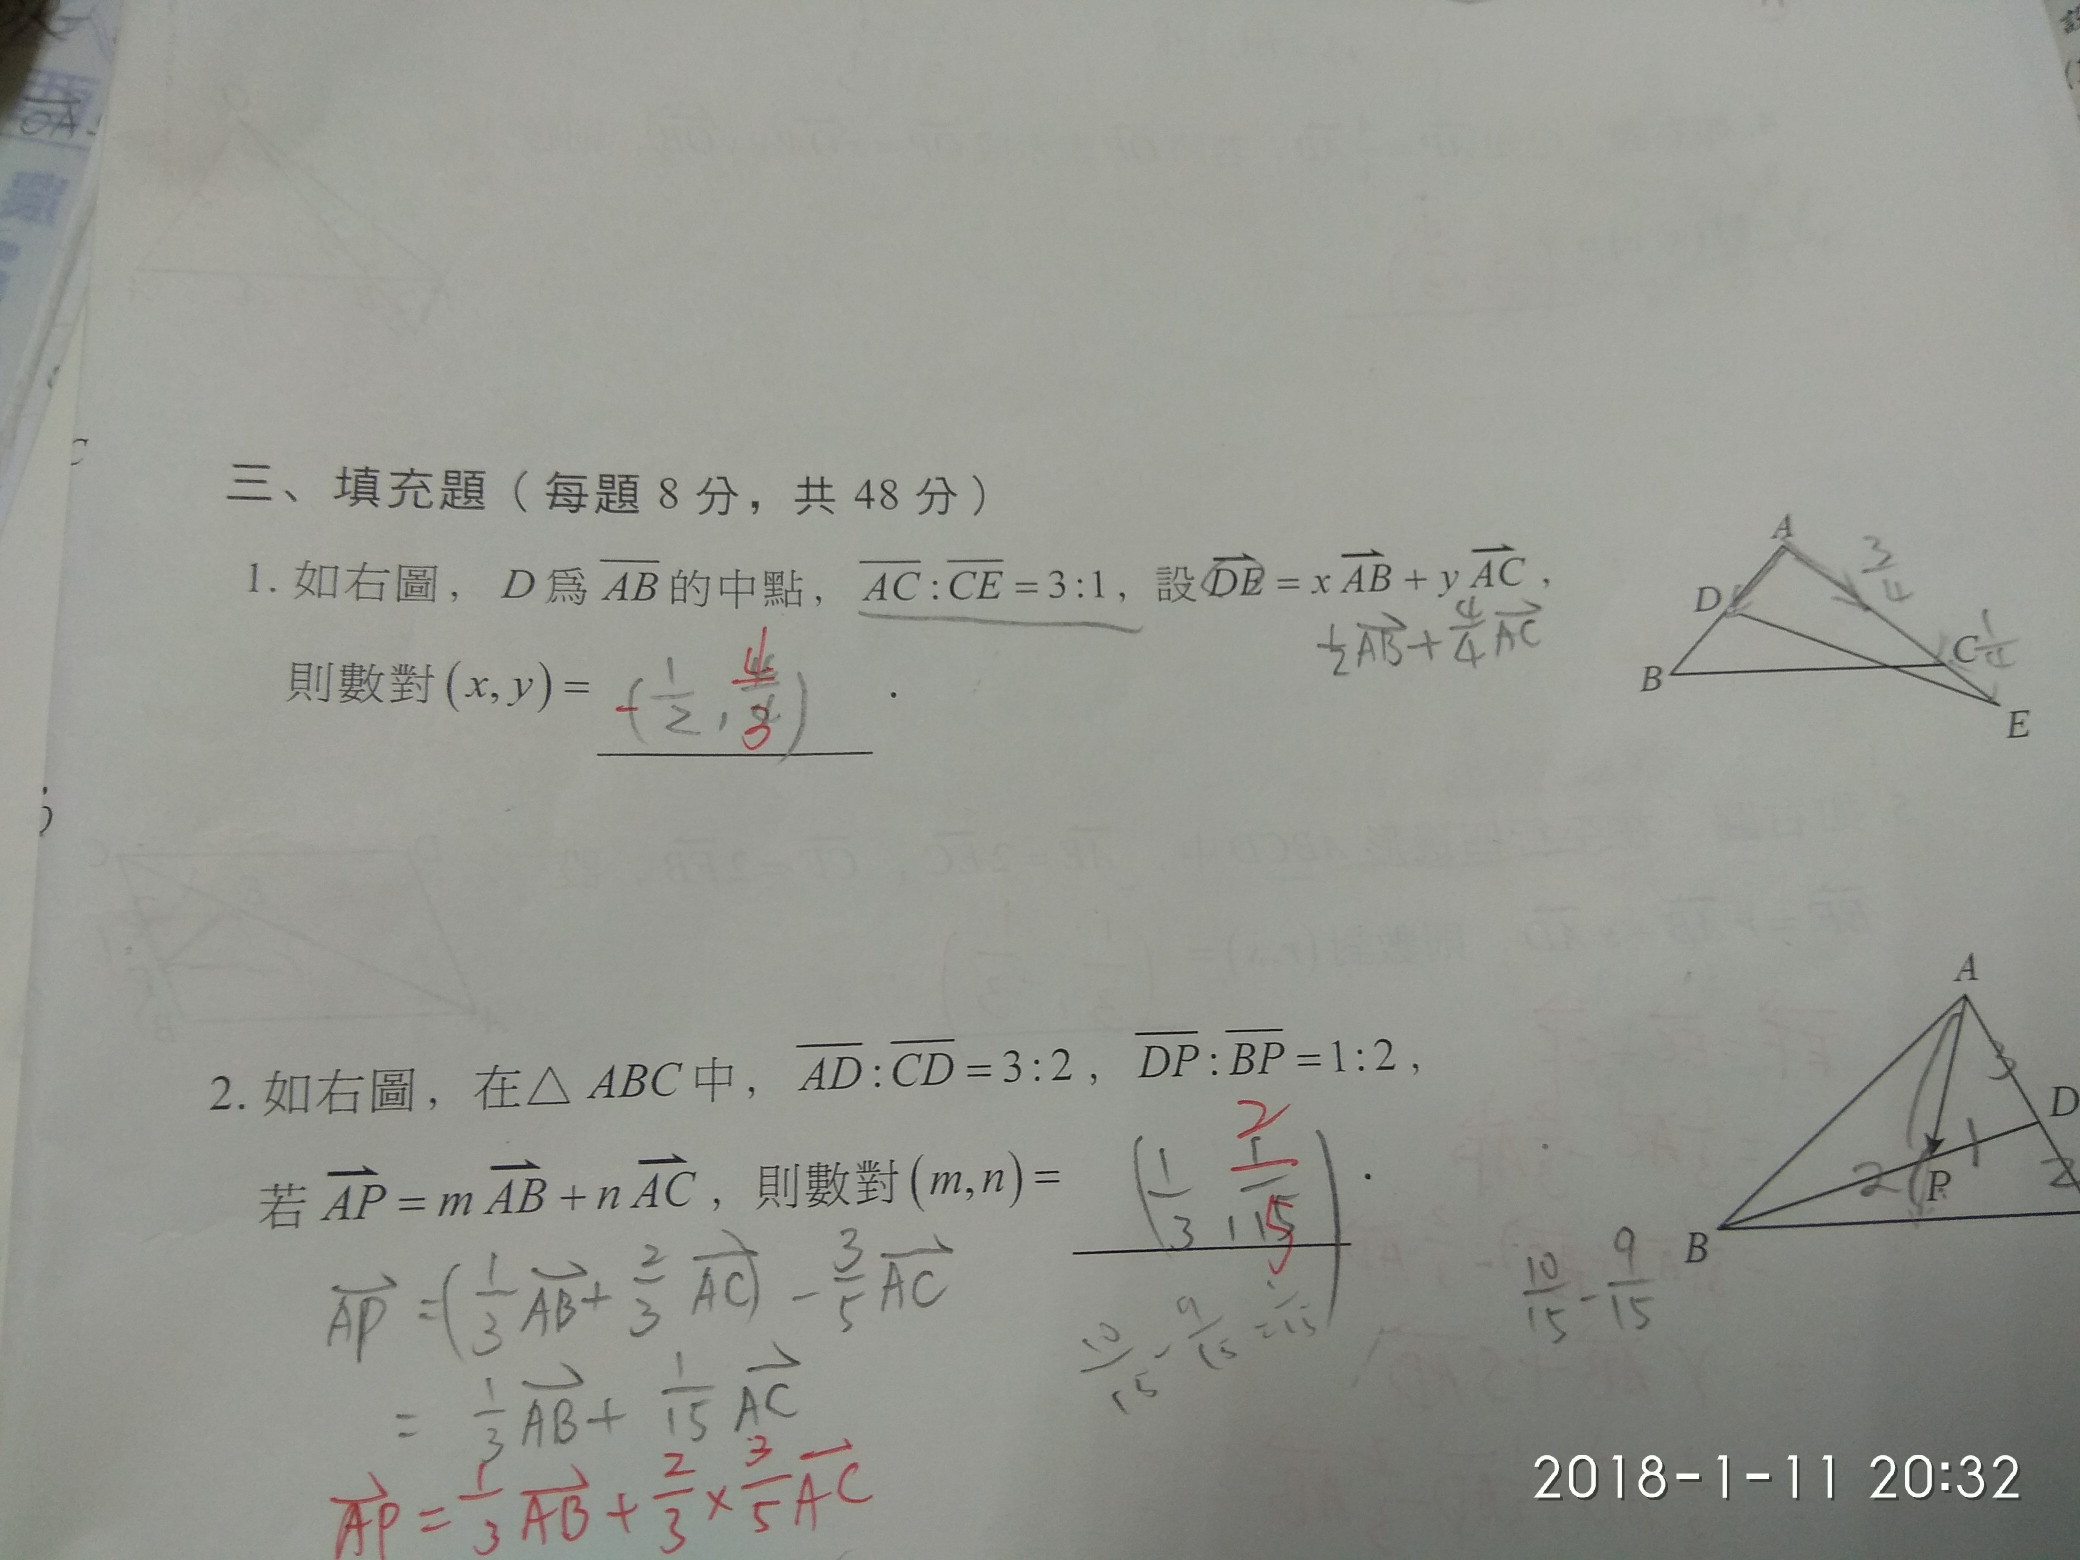 三、填充題（每題 8 分，共 48 分）
1. 如右圖，D 爲 \overline{AB} 的中點，\overline{AC} : \overline{CE} = 3 : 1，設 \overrightarrow{DE} = x \overrightarrow{AB} + y \overrightarrow{AC}，
\frac{1}{2}\overrightarrow{AB} + \frac{4}{4}\overrightarrow{AC}
則數對 (x, y) = (-\frac{1}{2}, \frac{4}{3}).
A
\frac{3}{4}
D
C \frac{1}{4}
B
E
2. 如右圖，在△ ABC 中，\overline{AD} : \overline{CD} = 3 : 2，\overline{DP} : \overline{BP} = 1 : 2，
若 \overrightarrow{AP} = m \overrightarrow{AB} + n \overrightarrow{AC}，則數對 (m, n) = (\frac{1}{3}, \frac{1}{15}) \frac{2}{5}.
A
3
D
1
2 P 2
B
\frac{10}{15} - \frac{9}{15}
\overrightarrow{AP} = (\frac{1}{3}\overrightarrow{AB} + \frac{2}{3}\overrightarrow{AC}) - \frac{3}{5}\overrightarrow{AC}
\frac{10}{15} - \frac{9}{15} = \frac{1}{15}
= \frac{1}{3}\overrightarrow{AB} + \frac{1}{15}\overrightarrow{AC}
\overrightarrow{AP} = \frac{1}{3}\overrightarrow{AB} + \frac{2}{3} × \frac{3}{5}\overrightarrow{AC}
2018-1-11 20:32